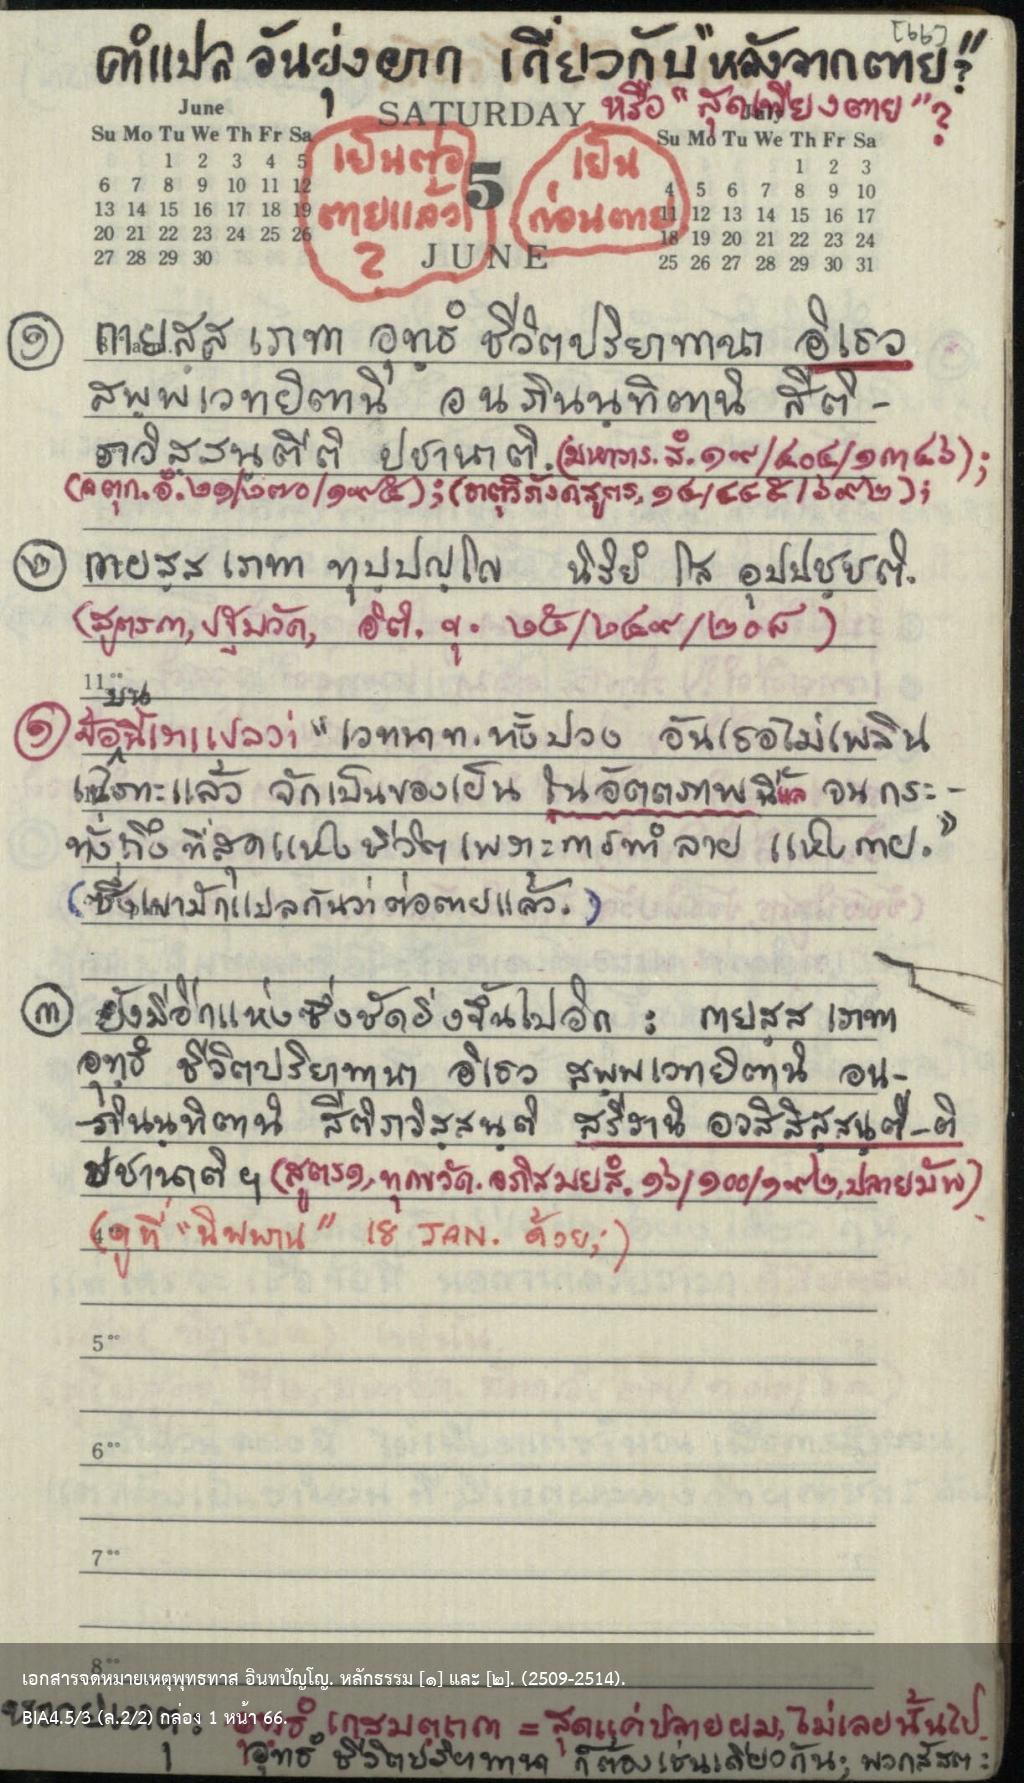 [๖๖]
คำแปล อันยุ่งยาก เกี่ยวกับ "หลังจากตาย"?
หรือ "สุดเพียงตาย"?
June
SATURDAY
July
Su Mo Tu We Th Fr Sa
1 2 3 4 5
6 7 8 9 10 11 12
13 14 15 16 17 18 19
20 21 22 23 24 25 26
27 28 29 30
เย็นต่อ
ตายแล้ว
?
5
JUNE
เย็น
ก่อนตาย
Su Mo Tu We Th Fr Sa
1 2 3
4 5 6 7 8 9 10
11 12 13 14 15 16 17
18 19 20 21 22 23 24
25 26 27 28 29 30 31
๑ กายสฺส เภทา อุทฺธํ ชีวิตปริยาทานา อิเธว
สพฺพเวทยิตานิ อนภินนฺทิตานิ สีติ-
ภวิสฺสนฺตีติ ปชานาติ. (มหาวาร.สํ.๑๙/๔๐๔/๑๓๔๖);
(จตุกฺ.อํ.๒๑/๒๗๐/๑๙๕); (ธาตุวิภังคสูตร, ๑๔/๔๔๕/๖๙๒);
๒ กายสฺส เภทา ทุปฺปญฺโญ นิรยํ โส อุปปชฺชติ.
(สูตร๓, ปฐมวัค, อิติ. ขุ. ๒๕/๒๔๙/๒๐๘)
11⁰⁰
บน
๑ ข้อนี้เขาแปลว่า "เวทนา ท. ทั้งปวง อันเธอไม่เพลิน
เฉพาะแล้ว จักเป็นของเย็น ในอัตตภาพนี่แล จนกระ-
ทั่งถึง ที่สุดแห่งชีวิต เพราะการทำลาย แห่งกาย."
(ซึ่งเขามักแปลกันว่าต่อตายแล้ว.)
๓ ยังมีอีกแห่งซึ่งชัดยิ่งขึ้นไปอีก : กายสฺส เภทา
อุทฺธํ ชีวิตปริยาทานา อิเธว สพฺพเวทยิตานิ อน-
-ภินนฺทิตานิ สีติภวิสฺสนฺติ สรีรานิ อวสิสฺสนฺตี-ติ
ปชานาติ ฯ (สูตร๑, ทุกขวัค. อภิสมยสํ. ๑๖/๑๐๐/๑๙๒, ปลายบัพ)
(ดูที่ "นิพพาน" 18 JAN. ด้วย;)
5⁰⁰
6⁰⁰
7⁰⁰
8⁰⁰
เอกสารจดหมายเหตุพุทธทาส อินทปัญโญ. หลักธรรม [๑] และ [๒]. (2509-2514).
BIA4.5/3 (ล.2/2) กล่อง 1 หน้า 66.
หมายเหตุ: อุทฺธํ เกสมตฺถกา = สุดแค่ปลายผม, ไม่เลยนั้นไป.
อุทฺธํ ชีวิตปริยาทานา ก็ต้องเช่นเดียวกัน; พวกสัสต: